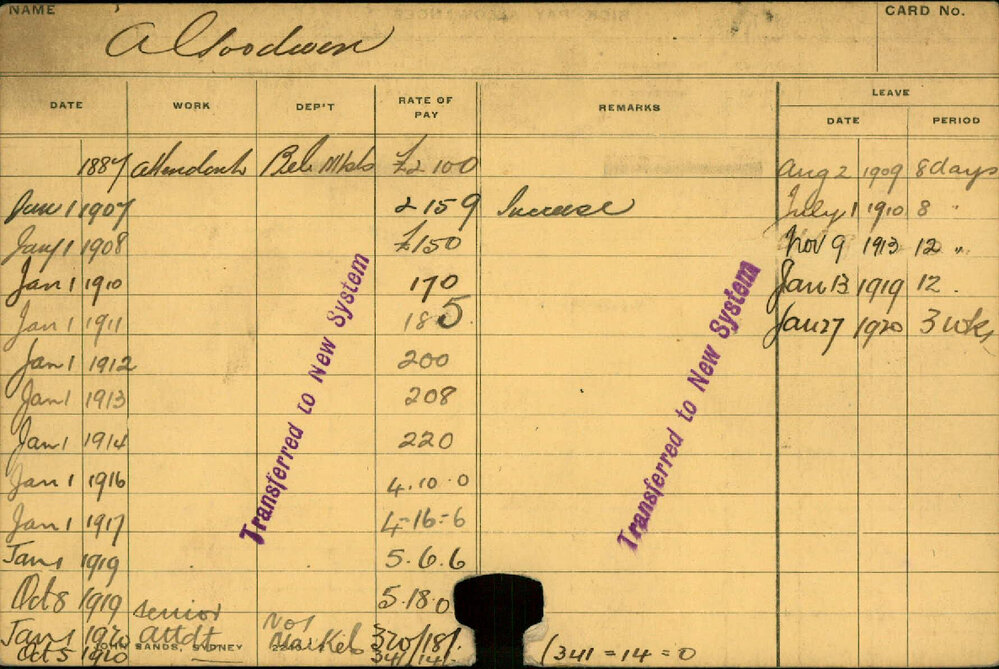 NAME A Goodwin CARD No.
DATE WORK DEP'T RATE OF PAY REMARKS LEAVE
DATE PERIOD
1887 Attendant Bel Mkts £2 10 0 Aug 2 1909 8 days
Jan 1 1907 2 15 9 Increase July 1 1910 8 "
Jany 1 1908 £150 Nov 9 1913 12 "
Jan 1 1910 170 Jan 13 1919 12 .
Jan 1 1911 185 Jan 27 1920 3 wks
Jan 1 1912 200
Jan 1 1913 208
Jan 1 1914 220
Jan 1 1916 4.10.0
Jan 1 1917 4-16-6
Jan 1 1919 5.6.6
Oct 8 1919 5.18.0
Jan 1 1920 Senior Attdt No 1 Market 320/18/.
Oct 5 1920 341/14/- (341=14=0
SANDS, SYDNEY
Transferred to New System
Transferred to New System